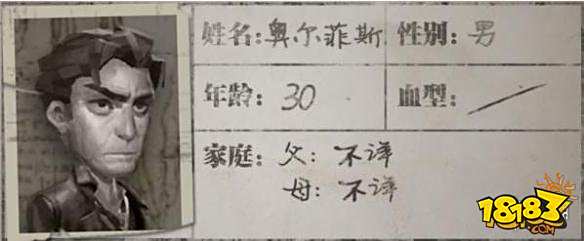 姓名:奥尔菲斯 性别:男
年龄:30 血型:/
家庭:父:不详
母:不详
18183
.COM